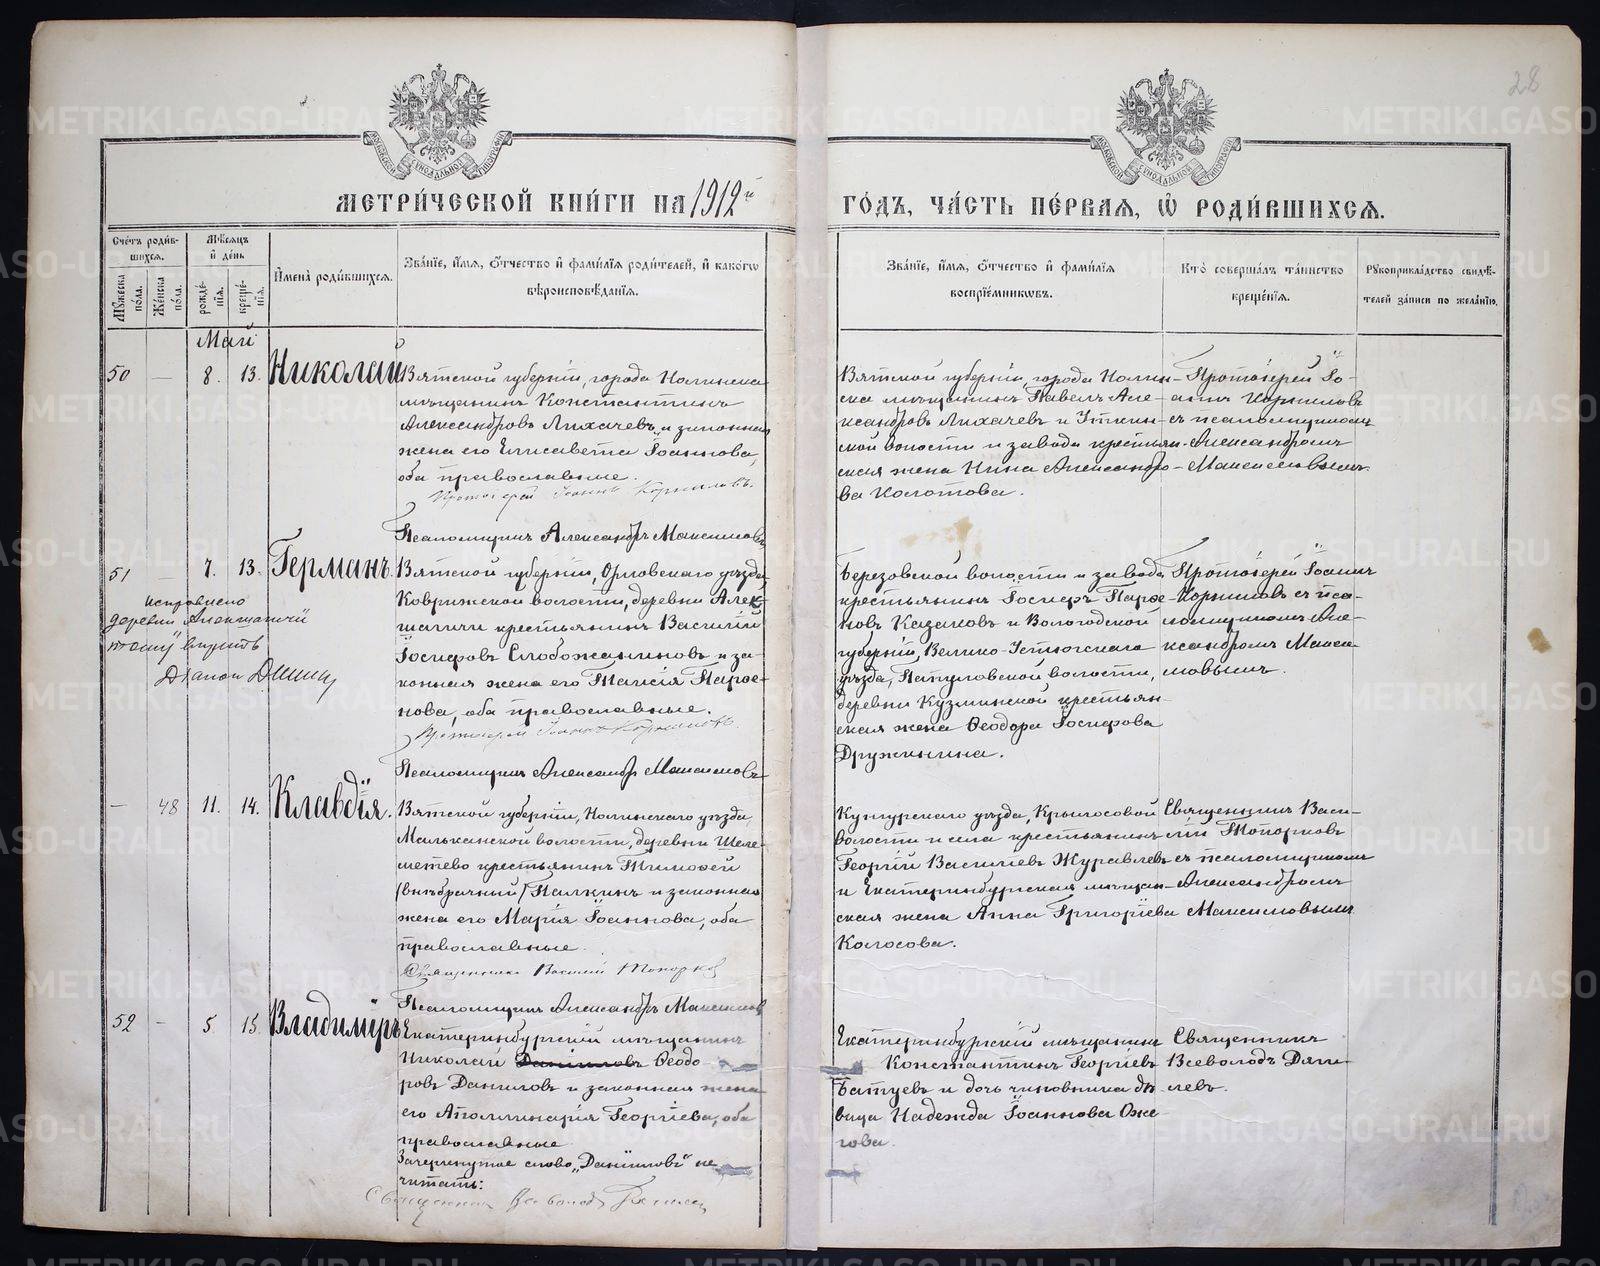 28
МЕТРИ́ЧЕСКОЙ КНИ́ГИ НА 1912й
ГО́ДЪ, ЧА́СТЬ ПЕ́РВАЯ, Ѡ РОДИ́ВШИХСЯ.
Сче́тъ роди́в-
шихся.
Му́жеска по́ла.
Же́нска по́ла.
Мѣ́сяцъ
и де́нь
рожде́-
нія.
креще́-
нія.
И́мена роди́вшихся.
Зва́ніе, и́мя, о́тчество и фами́лія роди́телей, и како́гѡ
вѣроисповѣ́данія.
Зва́ніе, и́мя, о́тчество и фами́лія
воспріе́мниковъ.
Кто́ соверша́лъ та́инство
креще́нія.
Рукоприкла́дство свидѣ́-
телей за́писи по жела́нію.
Май
50 — 8. 13. Николай
Вятской губерніи, города Нолинска
мѣщанинъ Константинъ
Александровъ Лихачевъ и законная
жена его Елисавета Іоаннова,
оба православные.
Протоіерей Іоаннъ Корниловъ.
Псаломщикъ Александръ Максимовъ
Вятской губерніи, города Нолин-
ска мѣщанинъ Павелъ Але-
ксандровъ Лихачевъ и Уткин-
ской волости и завода крестьян-
ская жена Нина Александро-
ва Колотова.
Протоіерей Іо-
аннъ Корниловъ
съ псаломщикомъ
Александромъ
Максимовымъ.
51 — 7. 13. Германъ.
Исправлено
деревни Алекшаничи
Дьякон
Вятской губерніи, Орловскаго уѣзда,
Коврижской волости, деревни Алек-
шаничи крестьянинъ Василій
Іосифовъ Слобожаниновъ и за-
конная жена его Таисія Парѳе-
нова, оба православные.
Протоіерей Іоаннъ Корниловъ.
Псаломщикъ Александръ Максимовъ
Березовской волости и завода
крестьянинъ Іосифъ Парѳе-
новъ Казаковъ и Вологодской
губерніи, Велико-Устюжскаго
уѣзда, Папуловской волости,
деревни Кузминской крестьян-
ская жена Ѳеодора Іосифова
Дружинина.
Протоіерей Іоаннъ
Корниловъ съ пса-
ломщикомъ Але-
ксандромъ Макси-
мовымъ.
— 48 11. 14. Клавдія.
Вятской губерніи, Нолинскаго уѣзда,
Малыканской волости, деревни Шеле-
метево крестьянинъ Тимоѳей
(внѣбрачный) Палкинъ и законная
жена его Марія Іоаннова, оба
православные.
Священникъ Василій Топорков
Псаломщикъ Александръ Максимовъ
Кунгурскаго уѣзда, Крыласовой
волости и села крестьянинъ
Георгій Василіевъ Журавлевъ
и Екатеринбургская мѣщан-
ская жена Анна Григоріева
Колосова.
Священникъ Васи-
лій Топорковъ
съ псаломщикомъ
Александромъ
Максимовымъ
52 — 5. 15. Владиміръ
Екатеринбургскій мѣщанинъ
Николай Даніиловъ Ѳеодо-
ровъ Даниловъ и законная жена
его Аполлинарія Георгіева, оба
православные
Зачеркнутое слово „Даніиловъ“ не
читать:
Священникъ Всеволодъ
Екатеринбургскій мѣщанинъ
Константинъ Георгіевъ
Батуевъ и дочь чиновника дѣ-
вица Надежда Іоаннова Оже-
гова.
Священникъ
Всеволодъ Дяги-
левъ.
METRIKI.GASO-URAL.RU